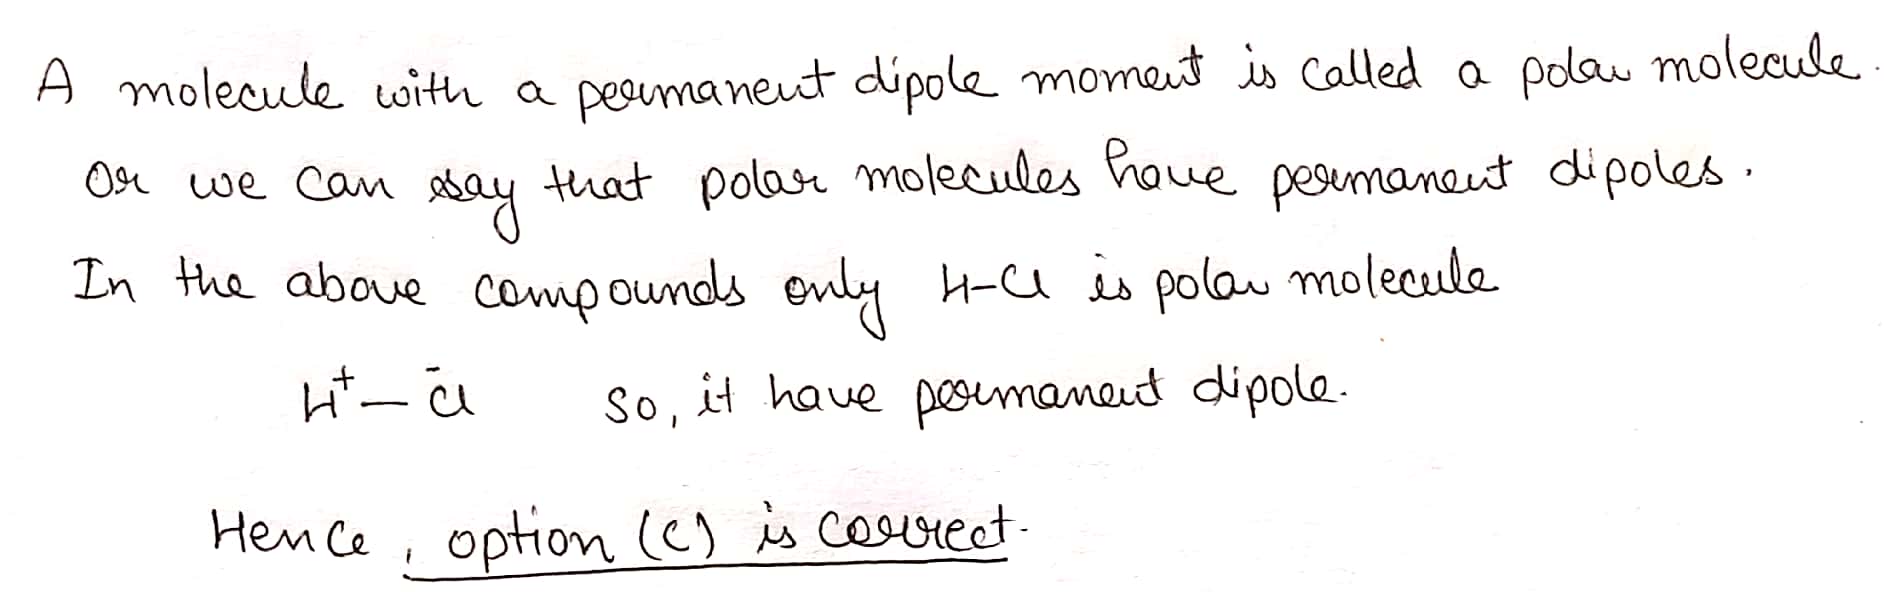 A molecule with a permanent dipole moment is called a polar molecule.
Or we can say that polar molecules have permanent dipoles.
In the above compounds only H-Cl is polar molecule
H⁺ — C̄l so, it have permanent dipole.
Hence, option (c) is correct.